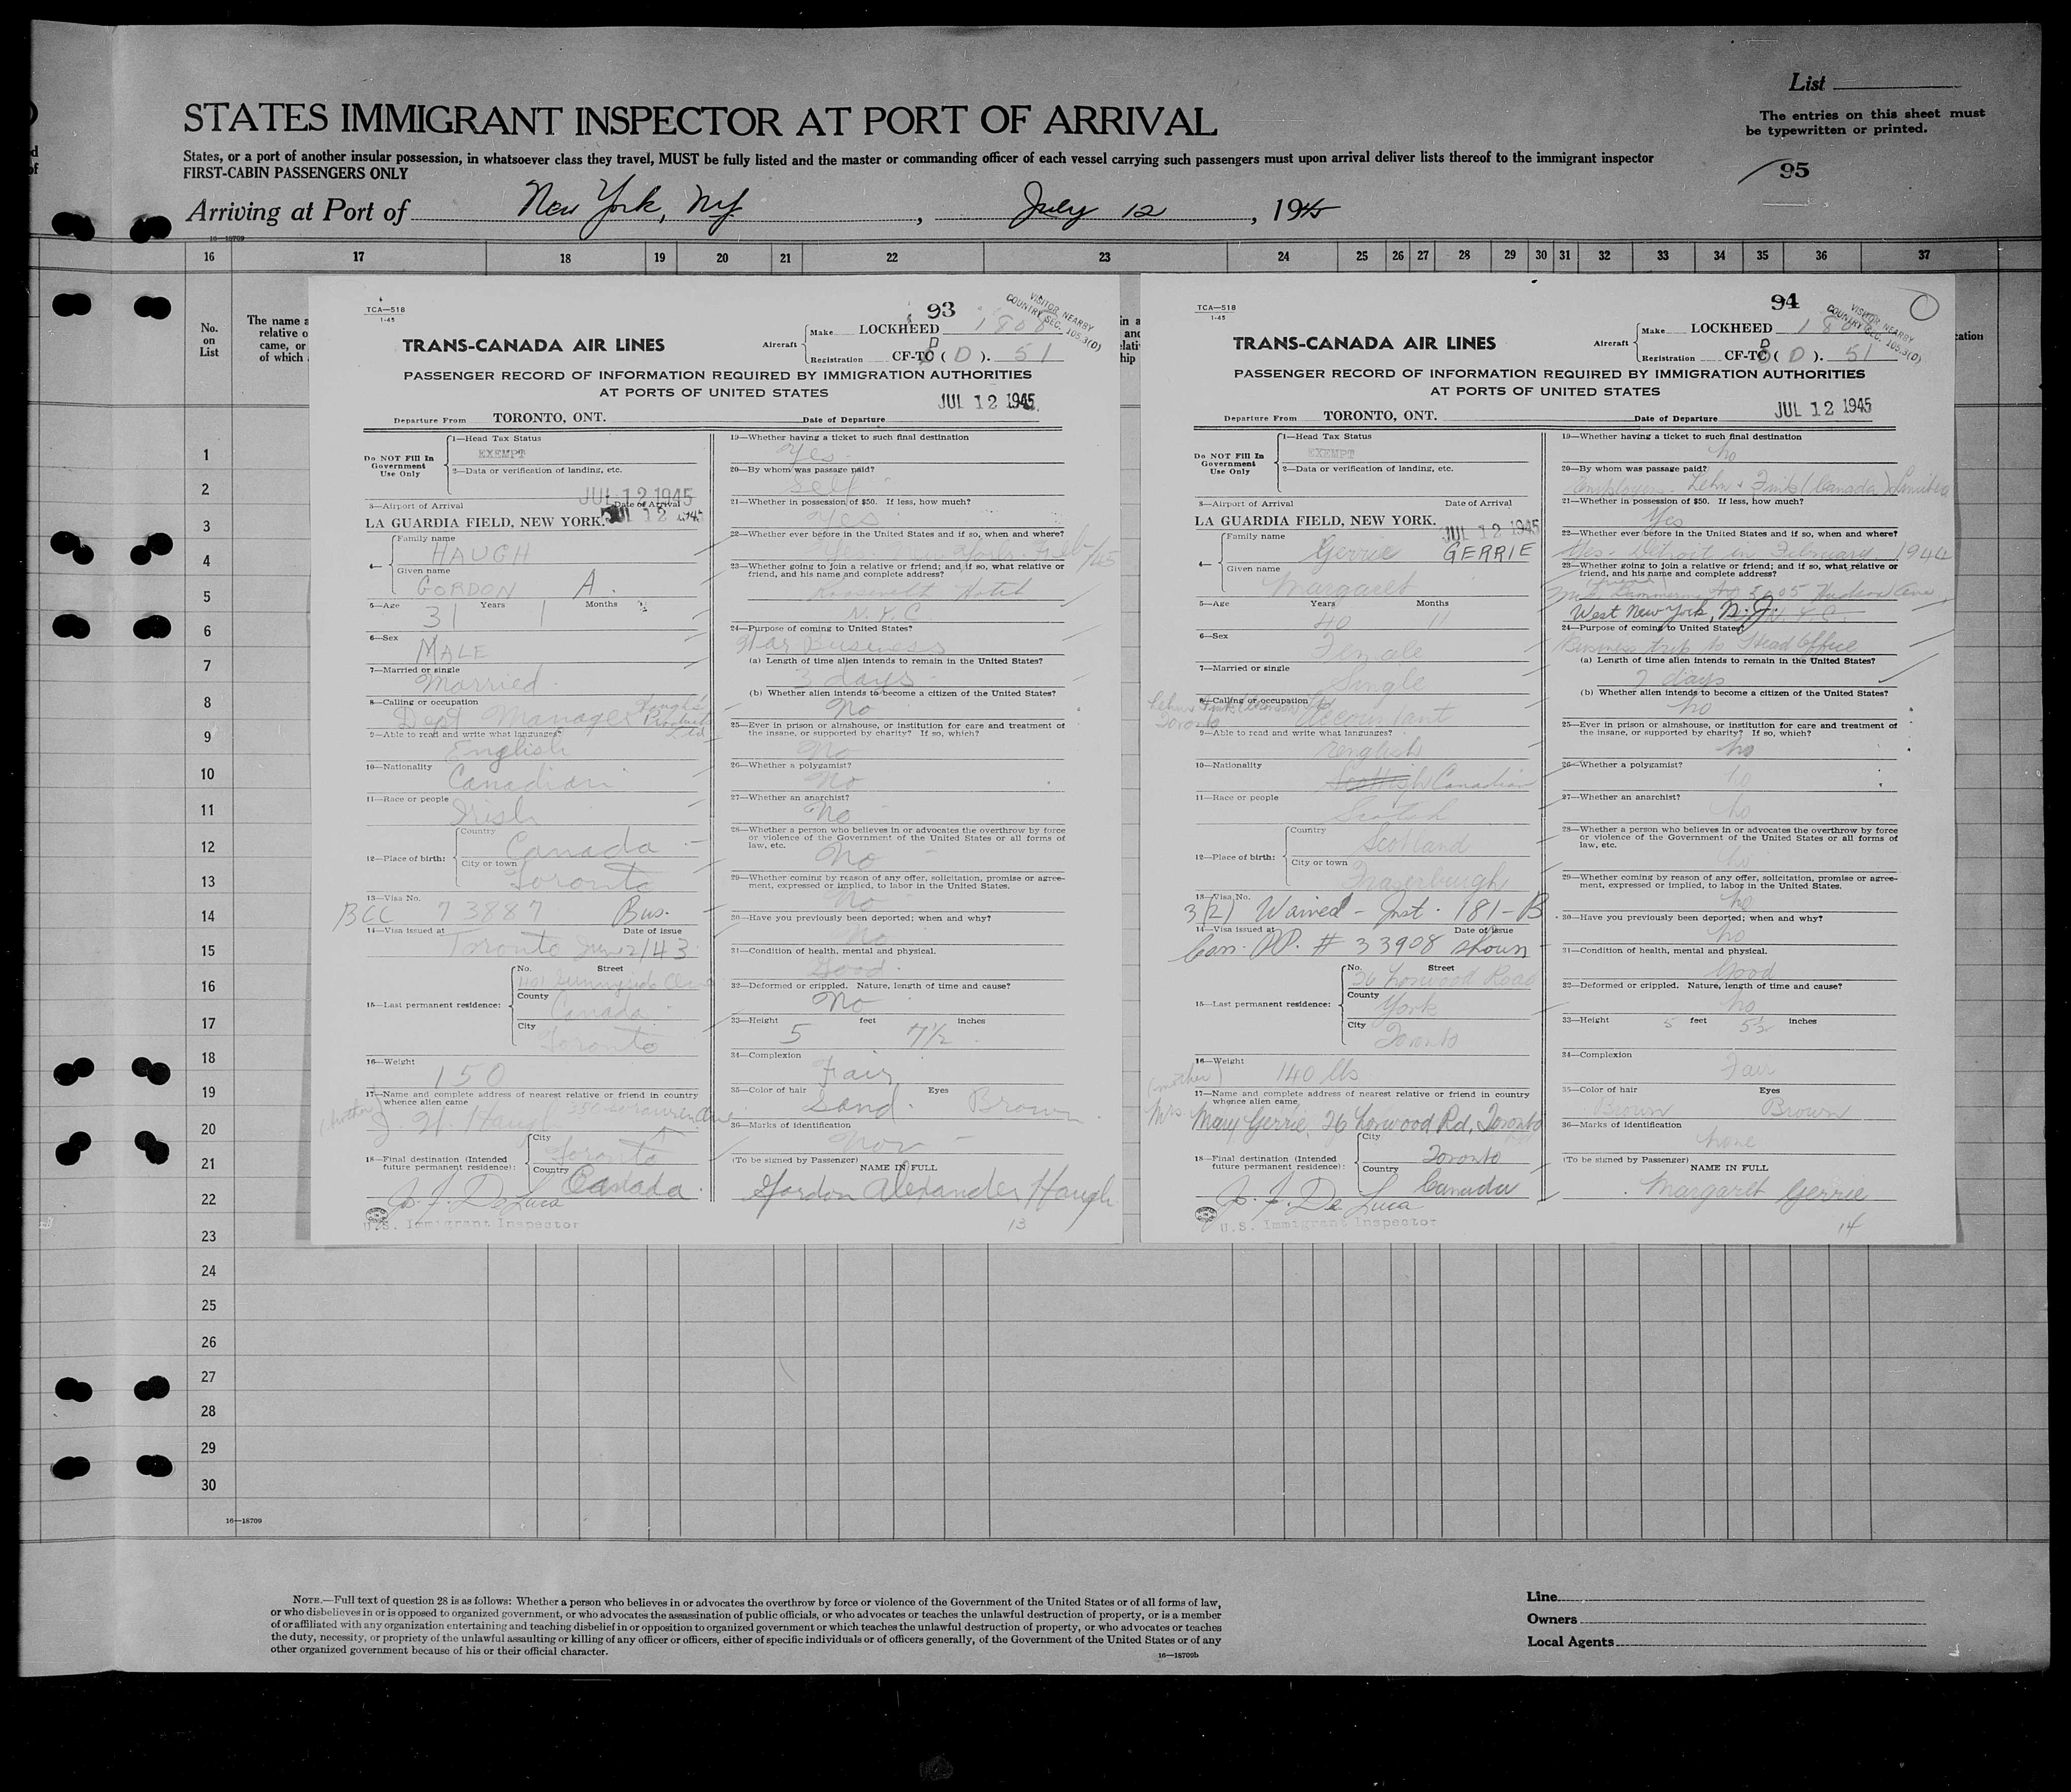 List
STATES IMMIGRANT INSPECTOR AT PORT OF ARRIVAL
The entries on this sheet must
be typewritten or printed.
States, or a port of another insular possession, in whatsoever class they travel, MUST be fully listed and the master or commanding officer of each vessel carrying such passengers must upon arrival deliver lists thereof to the immigrant inspector
FIRST-CABIN PASSENGERS ONLY
95
Arriving at Port of New York, NY, July 12, 1945
16—18709
16 17 18 19 20 21 22 23 24 25 26 27 28 29 30 31 32 33 34 35 36 37
No.
on
List
The name a
relative o
came, or
of which
1
2
3
4
5
6
7
8
9
10
11
12
13
14
15
16
17
18
19
20
21
22
23
24
25
26
27
28
29
30
TCA—518
1-45
93
VISITOR NEARBY
COUNTRY SEC. 105.3(D)
TRANS-CANADA AIR LINES
Aircraft
Make LOCKHEED 1808
Registration CF-TC ( D ). 51
PASSENGER RECORD OF INFORMATION REQUIRED BY IMMIGRATION AUTHORITIES
AT PORTS OF UNITED STATES
JUL 12 1945
Departure From TORONTO, ONT. Date of Departure
Do NOT Fill In
Government
Use Only
1—Head Tax Status
EXEMPT
2—Data or verification of landing, etc.
JUL 12 1945
3—Airport of Arrival Date of Arrival
LA GUARDIA FIELD, NEW YORK. JUL 12 1945
4—
Family name
HAUGH
Given name
GORDON A.
5—Age 31 Years 1 Months
6—Sex
MALE
7—Married or single
Married
8—Calling or occupation
Dept Manager
9—Able to read and write what languages?
English
10—Nationality
Canadian
11—Race or people
Irish
12—Place of birth:
Country
Canada
City or town
Toronto
13—Visa No.
BCC 73887 Bus.
14—Visa issued at Date of issue
Toronto Jun 2/43
15—Last permanent residence:
No. Street
1101 Sunnyside Ave
County
Canada
City
Toronto
16—Weight
150
17—Name and complete address of nearest relative or friend in country
whence alien came
J. H. Haugh
18—Final destination (Intended
future permanent residence):
City
Toronto
Country
Canada
J. J. De Luca
U.S. Immigrant Inspector
19—Whether having a ticket to such final destination
Yes
20—By whom was passage paid?
Self
21—Whether in possession of $50. If less, how much?
Yes
22—Whether ever before in the United States and if so, when and where?
Yes New York Feb/45
23—Whether going to join a relative or friend; and if so, what relative or
friend, and his name and complete address?
Roosevelt Hotel
N.Y.C.
24—Purpose of coming to United States?
War Business
(a) Length of time alien intends to remain in the United States?
3 days
(b) Whether alien intends to become a citizen of the United States?
No
25—Ever in prison or almshouse, or institution for care and treatment of
the insane, or supported by charity? If so, which?
No
26—Whether a polygamist?
No
27—Whether an anarchist?
No
28—Whether a person who believes in or advocates the overthrow by force
or violence of the Government of the United States or all forms of
law, etc.
No
29—Whether coming by reason of any offer, solicitation, promise or agree-
ment, expressed or implied, to labor in the United States.
No
30—Have you previously been deported; when and why?
No
31—Condition of health, mental and physical.
Good
32—Deformed or crippled. Nature, length of time and cause?
No
33—Height 5 feet 7½ inches
34—Complexion
Fair
35—Color of hair Eyes
Sand. Brown
36—Marks of identification
Non
(To be signed by Passenger) NAME IN FULL
Gordon Alexander Haugh
13
TCA—518
1-45
94
VISITOR NEARBY
COUNTRY SEC. 105.3(D)
TRANS-CANADA AIR LINES
Aircraft
Make LOCKHEED 1808
Registration CF-TC ( D ). 51
PASSENGER RECORD OF INFORMATION REQUIRED BY IMMIGRATION AUTHORITIES
AT PORTS OF UNITED STATES
JUL 12 1945
Departure From TORONTO, ONT. Date of Departure
Do NOT Fill In
Government
Use Only
1—Head Tax Status
EXEMPT
2—Data or verification of landing, etc.
3—Airport of Arrival Date of Arrival
LA GUARDIA FIELD, NEW YORK. JUL 12 1945
4—
Family name
Gerrie GERRIE
Given name
Margaret
5—Age Years Months
40 11
6—Sex
Female
7—Married or single
Single
8—Calling or occupation
Accountant
9—Able to read and write what languages?
English
10—Nationality
Scottish Canadian
11—Race or people
Scotch
12—Place of birth:
Country
Scotland
City or town
Fraserburgh
13—Visa No.
3(2) Waived - Inst. 181-B
14—Visa issued at Date of issue
Can. PP. # 33908 shown
15—Last permanent residence:
No. Street
26 Norwood Road
County
York
City
Toronto
16—Weight
140 lbs
(mother)
17—Name and complete address of nearest relative or friend in country
whence alien came
Mrs. Mary Gerrie, 26 Norwood Rd, Toronto
18—Final destination (Intended
future permanent residence):
City
Toronto
Country
Canada
J. J. De Luca
U.S. Immigrant Inspector
19—Whether having a ticket to such final destination
No
20—By whom was passage paid?
Employers - Lehn & Fink (Canada) Limited
21—Whether in possession of $50. If less, how much?
Yes
22—Whether ever before in the United States and if so, when and where?
Yes - Detroit in February 1944
23—Whether going to join a relative or friend; and if so, what relative or
friend, and his name and complete address?
5605 Hudson Ave,
West New York, N.J. N.Y.C.
24—Purpose of coming to United States?
Business trip to Head Office
(a) Length of time alien intends to remain in the United States?
2 days
(b) Whether alien intends to become a citizen of the United States?
No
25—Ever in prison or almshouse, or institution for care and treatment of
the insane, or supported by charity? If so, which?
No
26—Whether a polygamist?
No
27—Whether an anarchist?
No
28—Whether a person who believes in or advocates the overthrow by force
or violence of the Government of the United States or all forms of
law, etc.
No
29—Whether coming by reason of any offer, solicitation, promise or agree-
ment, expressed or implied, to labor in the United States.
No
30—Have you previously been deported; when and why?
No
31—Condition of health, mental and physical.
Good
32—Deformed or crippled. Nature, length of time and cause?
No
33—Height 5 feet 5½ inches
34—Complexion
Fair
35—Color of hair Eyes
Brown Brown
36—Marks of identification
None
(To be signed by Passenger) NAME IN FULL
Margaret Gerrie
14
16—18709
NOTE.—Full text of question 28 is as follows: Whether a person who believes in or advocates the overthrow by force or violence of the Government of the United States or of all forms of law,
or who disbelieves in or is opposed to organized government, or who advocates the assassination of public officials, or who advocates or teaches the unlawful destruction of property, or is a member
of or affiliated with any organization entertaining and teaching disbelief in or opposition to organized government or which teaches the unlawful destruction of property, or who advocates or teaches
the duty, necessity, or propriety of the unlawful assaulting or killing of any officer or officers, either of specific individuals or of officers generally, of the Government of the United States or of any
other organized government because of his or their official character.
16—18709b
Line
Owners
Local Agents